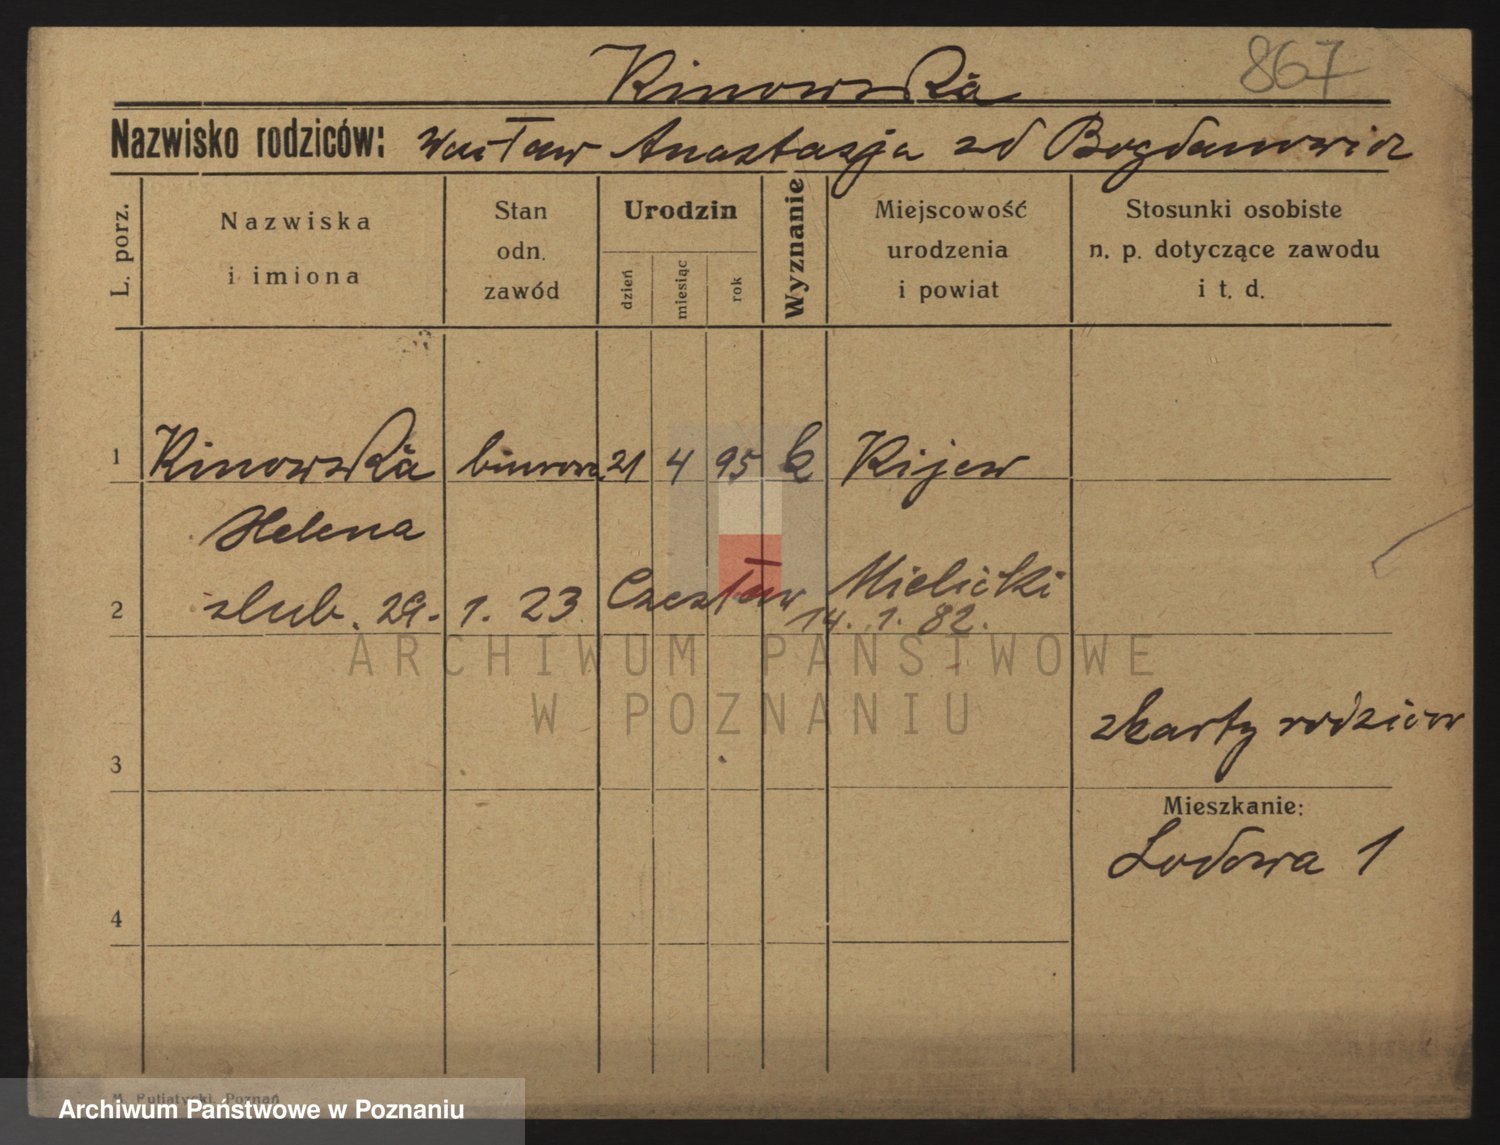 Kinowska 867
Nazwisko rodziców: Wacław Anastazja zd Bogdanowicz
L. porz.
Nazwiska i imiona
Stan odn. zawód
Urodzin
dzień
miesiąc
rok
Wyznanie
Miejscowość urodzenia i powiat
Stosunki osobiste n. p. dotyczące zawodu i t. d.
1 Kinowska biurowa 21 4 95 k Kijew
Helena
2 slub. 29. 1. 23 Czesław Mielicki
14. 1. 82.
ARCHIWUM PAŃSTWOWE
W POZNANIU
z karty rodziców
3
Mieszkanie:
Lodowa 1
4
M. Putiatycki, Poznań
Archiwum Państwowe w Poznaniu